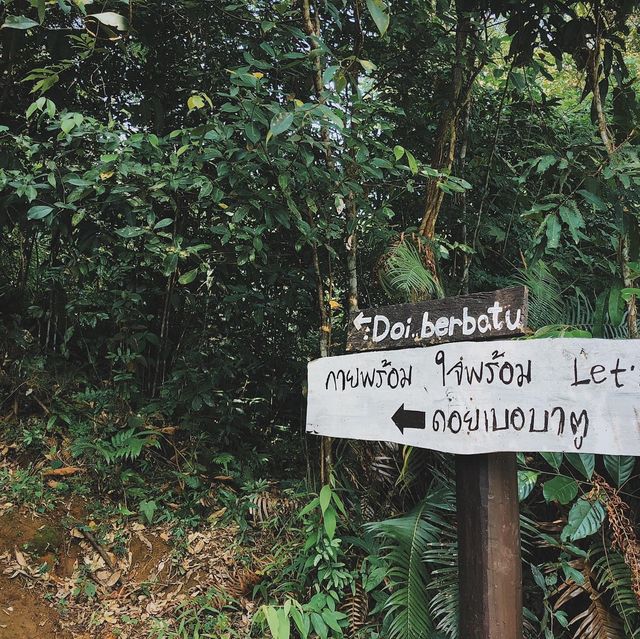 Doi.berbatu
กายพร้อม ใจพร้อม Let.
ดอยเบอบาตู